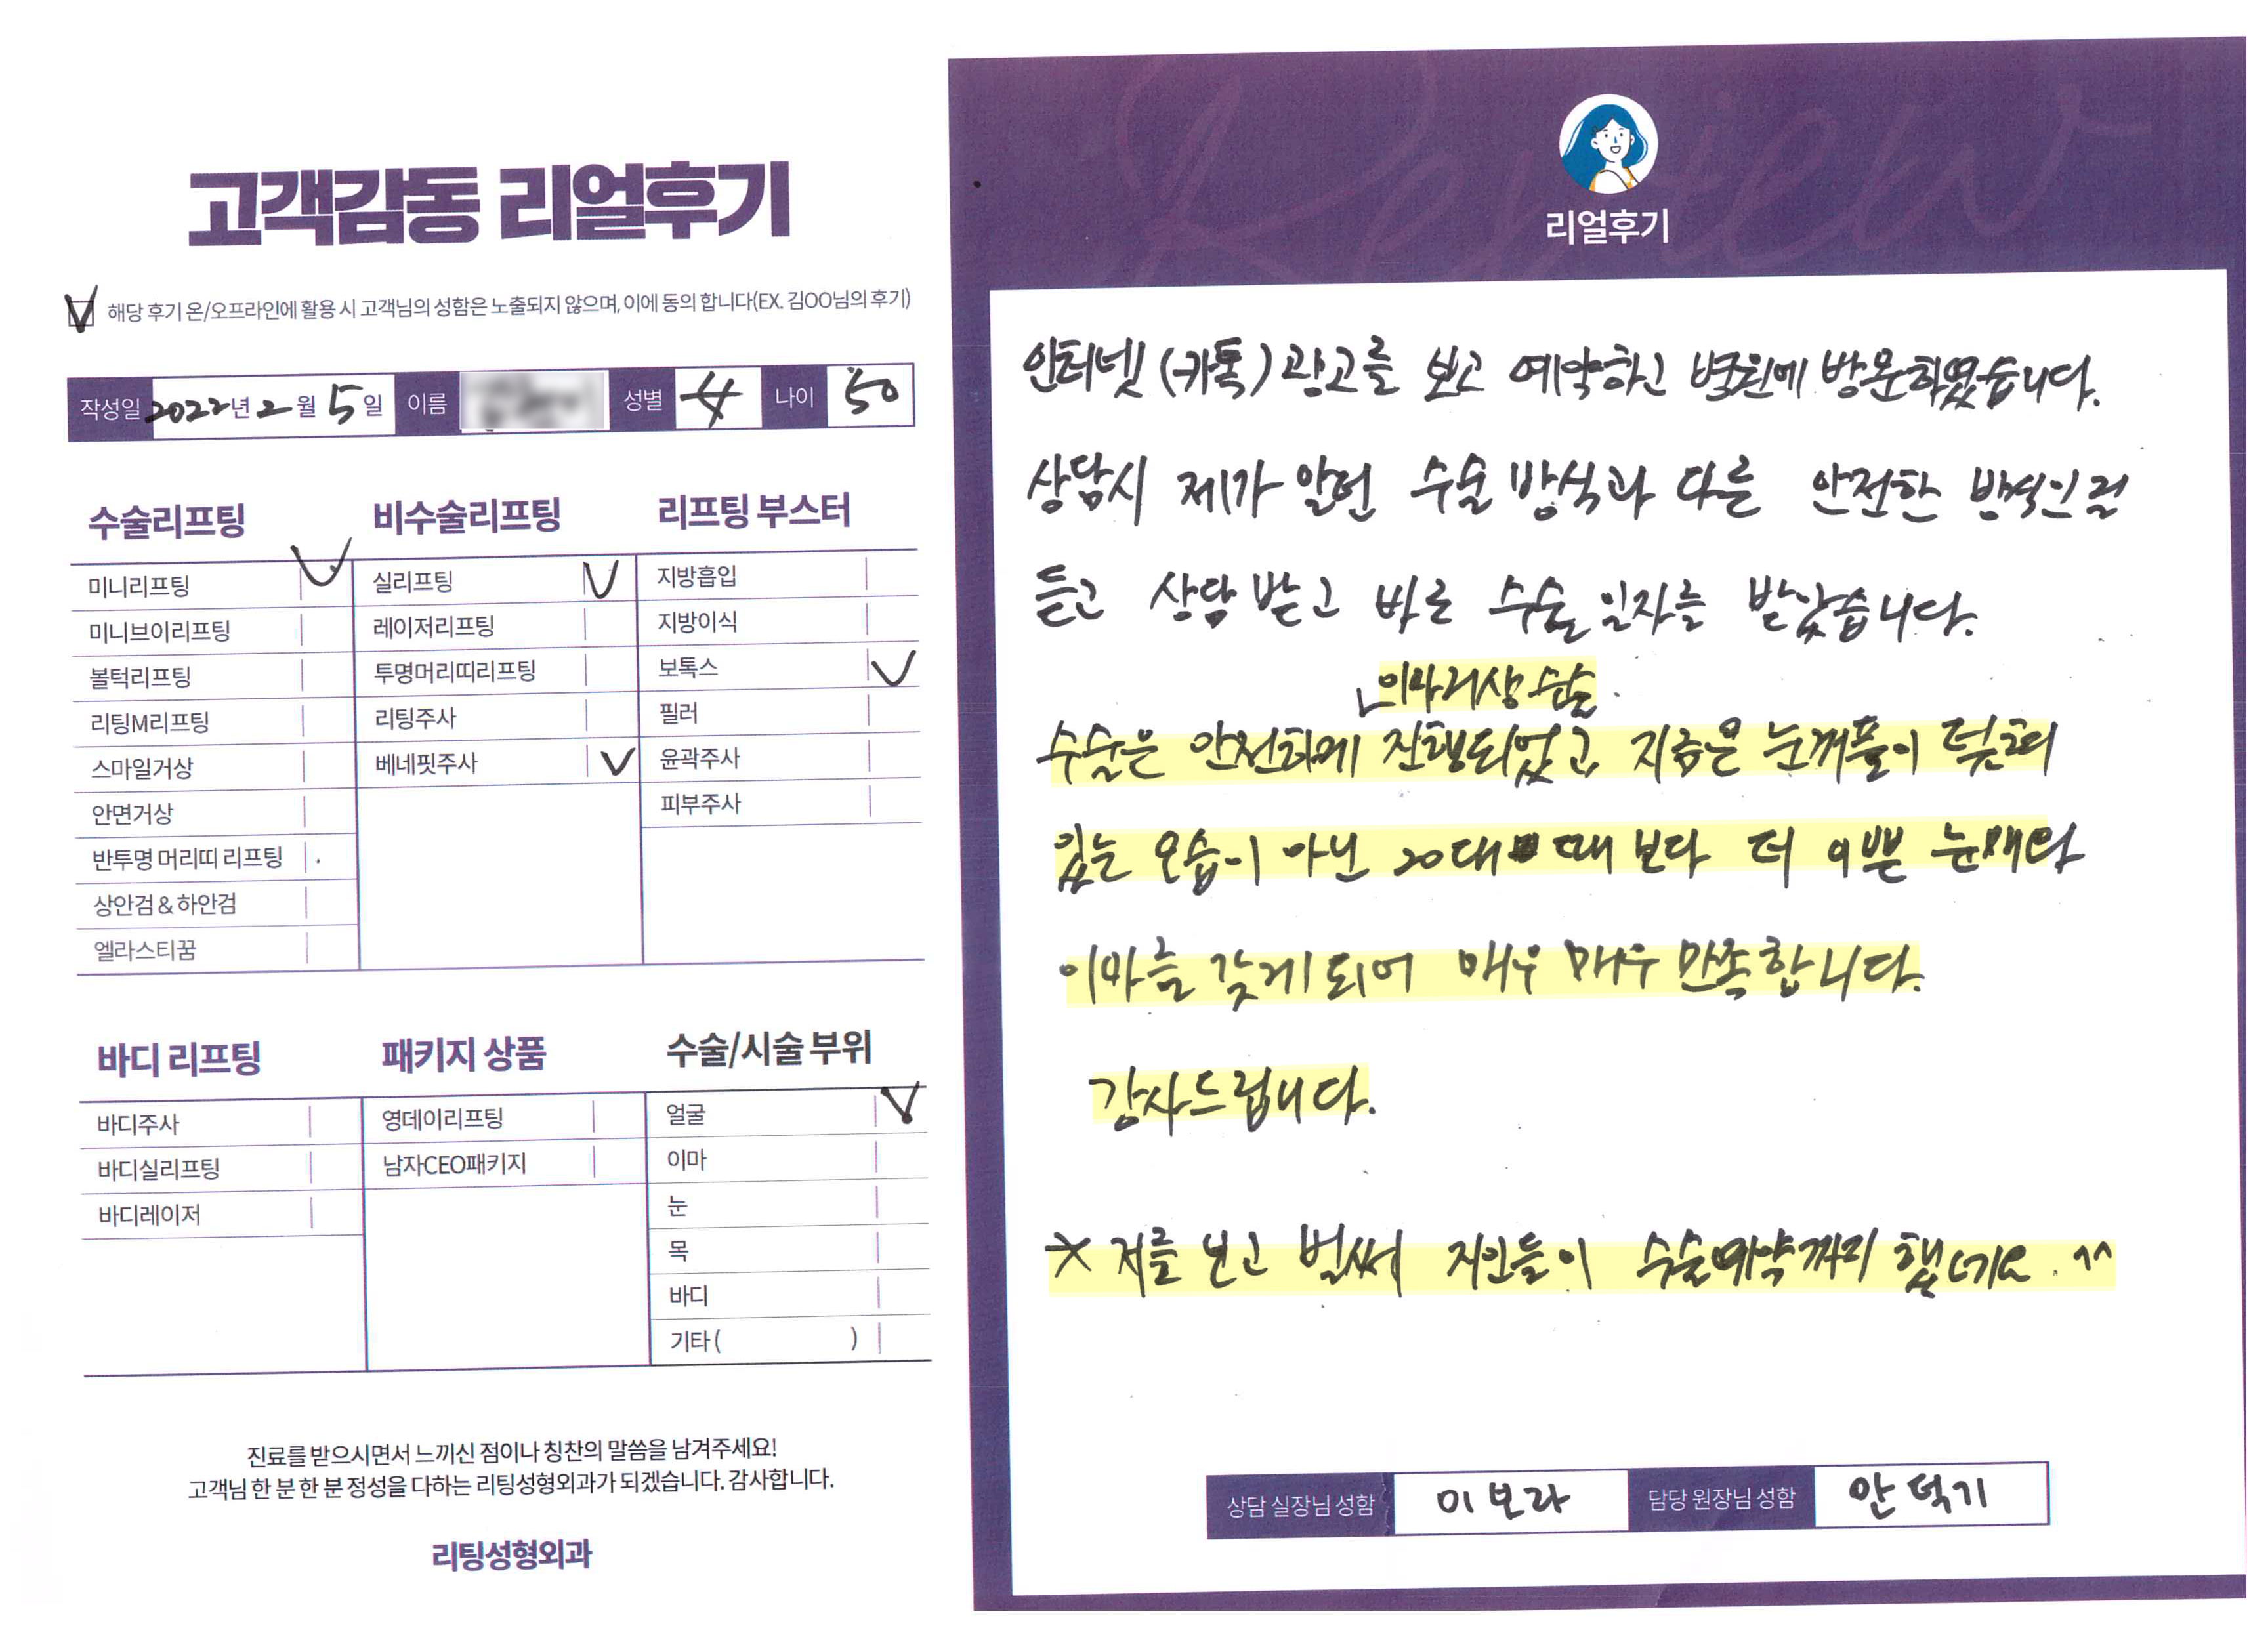 고객감동 리얼후기
해당 후기 온/오프라인에 활용 시 고객님의 성함은 노출되지 않으며, 이에 동의 합니다(EX. 김OO님의 후기)
작성일 2022년 2월 5일 이름 성별 女 나이 50
수술리프팅
미니리프팅
미니브이리프팅
볼턱리프팅
리팅M리프팅
스마일거상
안면거상
반투명 머리띠 리프팅
상안검 & 하안검
엘라스티꿈
비수술리프팅
실리프팅
레이저리프팅
투명머리띠리프팅
리팅주사
베네핏주사
리프팅 부스터
지방흡입
지방이식
보톡스
필러
윤곽주사
피부주사
바디 리프팅
바디주사
바디실리프팅
바디레이저
패키지 상품
영데이리프팅
남자CEO패키지
수술/시술 부위
얼굴
이마
눈
목
바디
기타 ( )
진료를 받으시면서 느끼신 점이나 칭찬의 말씀을 남겨주세요!
고객님 한 분 한 분 정성을 다하는 리팅성형외과가 되겠습니다. 감사합니다.
리팅성형외과
Review
리얼후기
인터넷 (카톡) 광고를 보고 예약하고 병원에 방문하였습니다.
상담시 제가 알던 수술 방식과 다른 안전한 방식인걸
듣고 상담 받고 바로 수술 일자를 받았습니다.
이마거상 수술
수술은 안전하게 진행되었고, 지금은 눈꺼풀이 덮혀
있는 모습이 아닌 20대 때 보다 더 이쁜 눈매와
이마를 갖게 되어 매우 매우 만족합니다.
감사드립니다.
* 저를 보고 벌써 지인들이 수술예약까지 했네요. ^^
상담 실장님 성함 이보라 담당 원장님 성함 안덕기